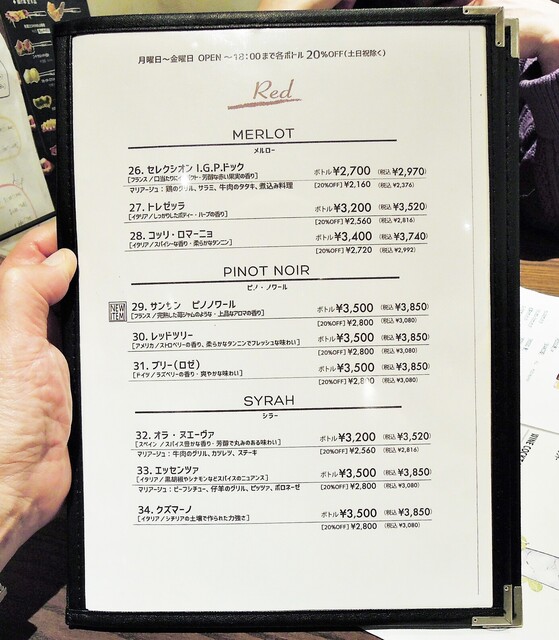 月曜日〜金曜日 OPEN 〜18:00まで各ボトル 20%OFF(土日祝除く)
Red
MERLOT
メルロー
26. セレクシオン I.G.P.ドック ボトル¥2,700 (税込 ¥2,970)
[フランス / 口当たりに ・芳醇な赤い果実の香り] [20%OFF] ¥2,160 (税込 ¥2,376)
マリアージュ：鶏のグリル、サラミ、牛肉のタタキ、煮込み料理
27. トレゼッラ ボトル¥3,200 (税込 ¥3,520)
[イタリア / しっかりしたボディー・ハーブの香り] [20%OFF] ¥2,560 (税込 ¥2,816)
28. コッリ・ロマーニョ ボトル¥3,400 (税込 ¥3,740)
[イタリア / スパイシーな香り・柔らかなタンニン] [20%OFF] ¥2,720 (税込 ¥2,992)
PINOT NOIR
ピノ・ノワール
NEW ITEM
29. サンサン ピノノワール ボトル¥3,500 (税込 ¥3,850)
[フランス / 完熟した苺ジャムのような・上品なアロマの香り] [20%OFF] ¥2,800 (税込 ¥3,080)
30. レッドツリー ボトル¥3,500 (税込 ¥3,850)
[アメリカ / ストロベリーの香り、柔らかなタンニンでフレッシュな味わい] [20%OFF] ¥2,800 (税込 ¥3,080)
31. ブリー(ロゼ) ボトル¥3,500 (税込 ¥3,850)
[ドイツ / ラズベリーの香り・爽やかな味わい] [20%OFF] ¥2,800 (税込 ¥3,080)
SYRAH
シラー
32. オラ・ヌエーヴァ ボトル¥3,200 (税込 ¥3,520)
[スペイン / スパイス豊かな香り・芳醇で丸みのある味わい] [20%OFF] ¥2,560 (税込 ¥2,816)
マリアージュ：牛肉のグリル、カツレツ、ステーキ
33. エッセンツァ ボトル¥3,500 (税込 ¥3,850)
[イタリア / 黒胡椒やシナモンなどスパイスのニュアンス] [20%OFF] ¥2,800 (税込 ¥3,080)
マリアージュ：ビーフシチュー、仔羊のグリル、ピッツァ、ボロネーゼ
34. クズマーノ ボトル¥3,500 (税込 ¥3,850)
[イタリア / シチリアの土壌で作られた力強さ] [20%OFF] ¥2,800 (税込 ¥3,080)